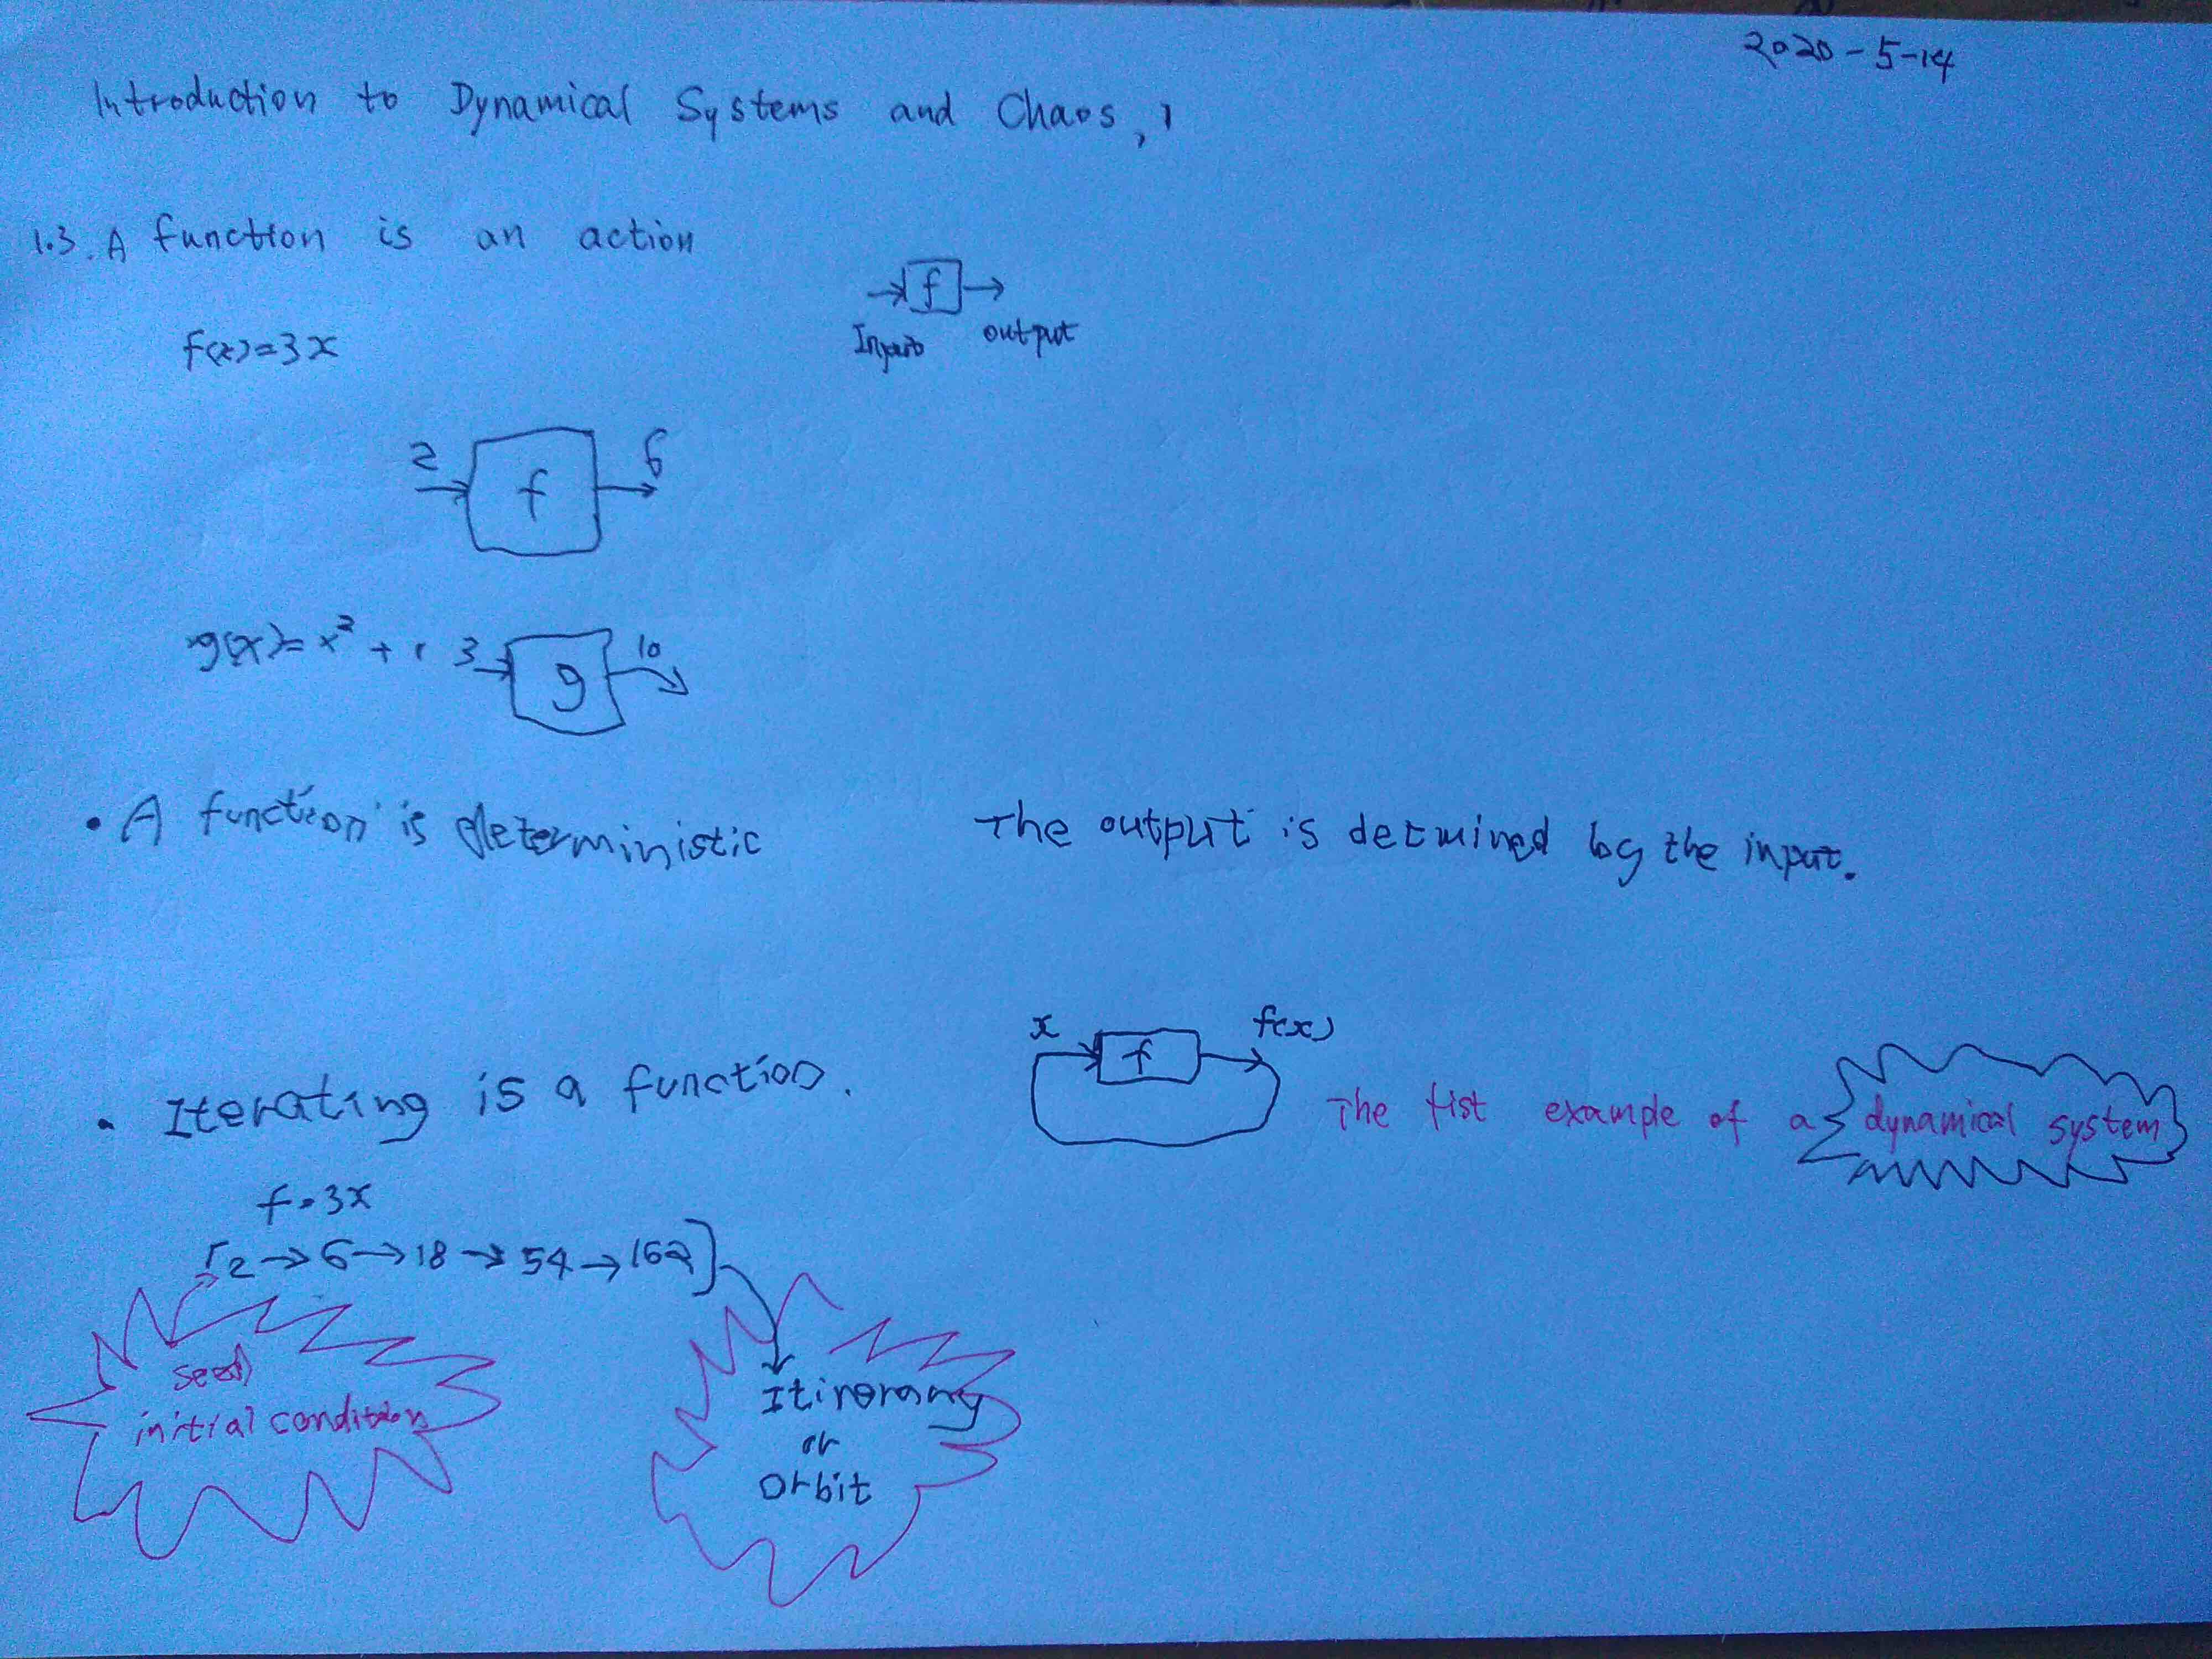 2020-5-14
Introduction to Dynamical Systems and Chaos, 1
1.3. A function is an action
f
Input output
f(x)=3x
2 f 6
g(x)=x²+1 3 g 10
• A function is deterministic The output is detmined by the input.
x f f(x)
• Iterating is a function.
The fist example of a dynamical system
f=3x
[2→6→18→54→162]
seed
initial condition
Itirerary
or
Orbit